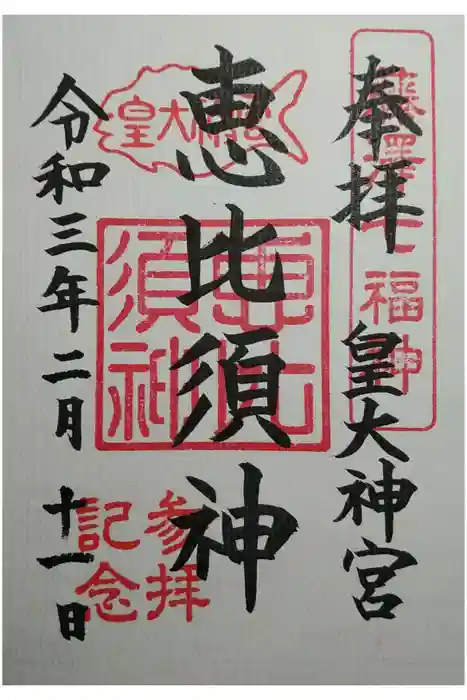 奉拝
皇大神宮
藤澤七福神
恵比須神
皇大神宮
恵比須神
参拝
記念
令和三年二月
十一日